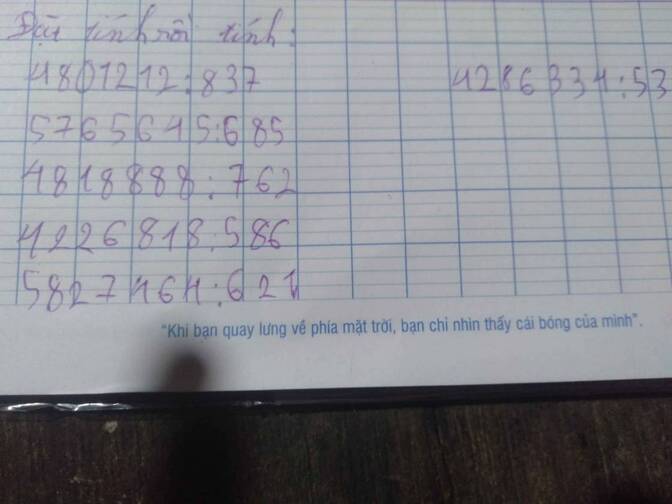 Đặt tính rồi tính:
4801212:837
4286334:53
5765645:685
4818888:762
4226818:586
5827464:621
"Khi bạn quay lưng về phía mặt trời, bạn chỉ nhìn thấy cái bóng của mình".